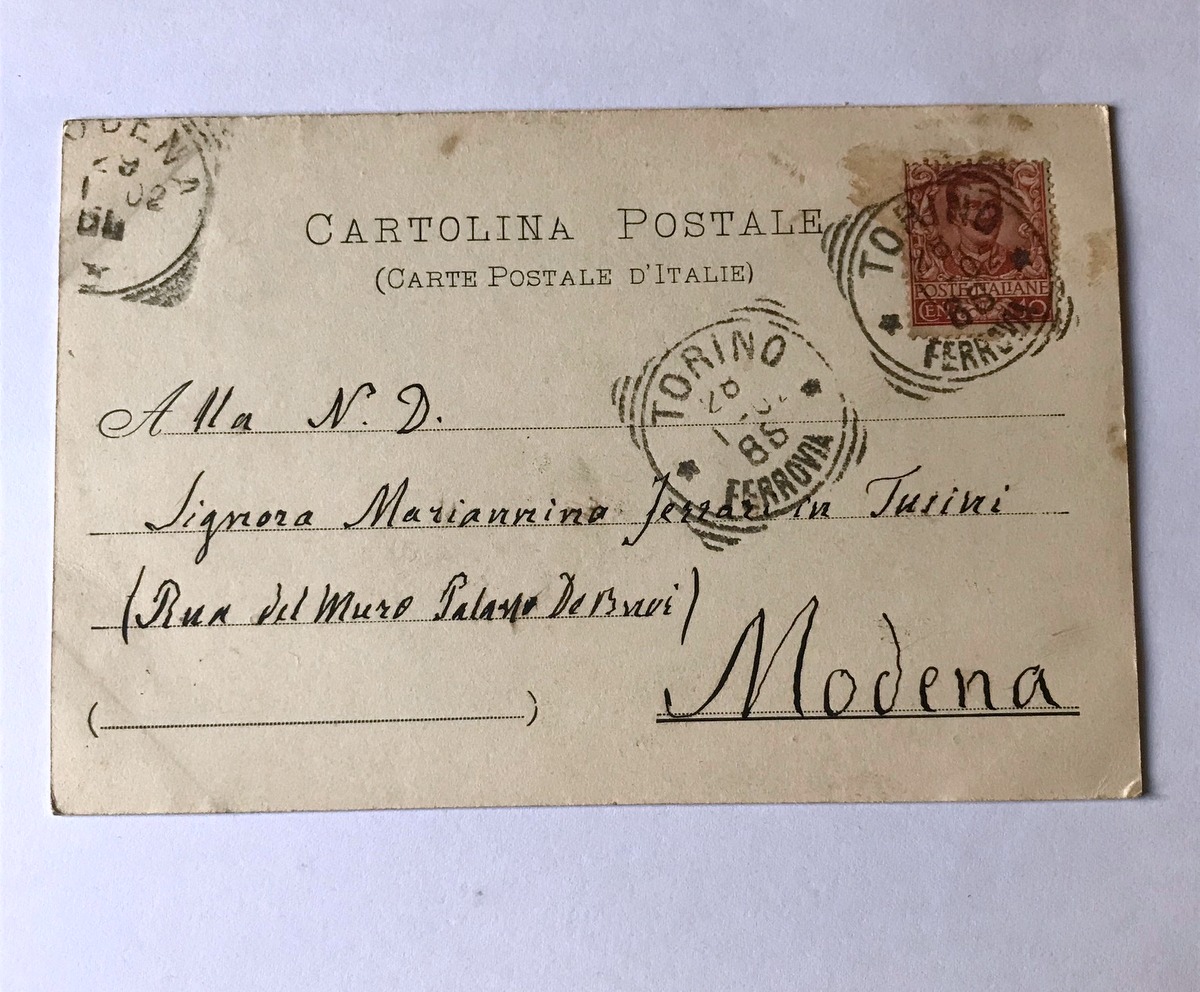 MODENA
28
1 02
CARTOLINA POSTALE
(CARTE POSTALE D'ITALIE)
TORINO
FERROVIA
POSTE ITALIANE
CENT 10
TORINO
28
1
8S
FERROVIA
Alla N. D.
Signora Mariannina Ferrari in Tusini
(Rua del Muro Palazzo De Buoi)
Modena